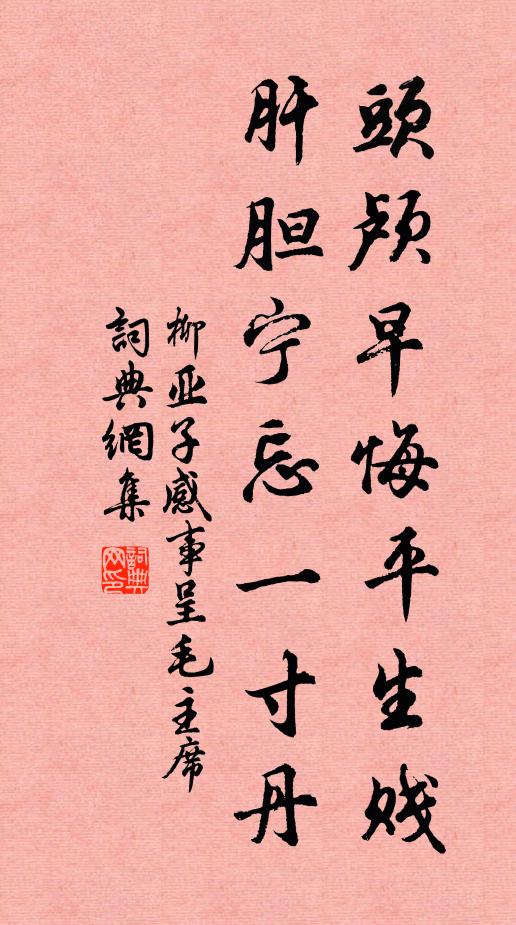 頭颅早悔平生贱
肝胆宁忘一寸丹
柳亚子感事呈毛主席
詞典網集
詞典网印